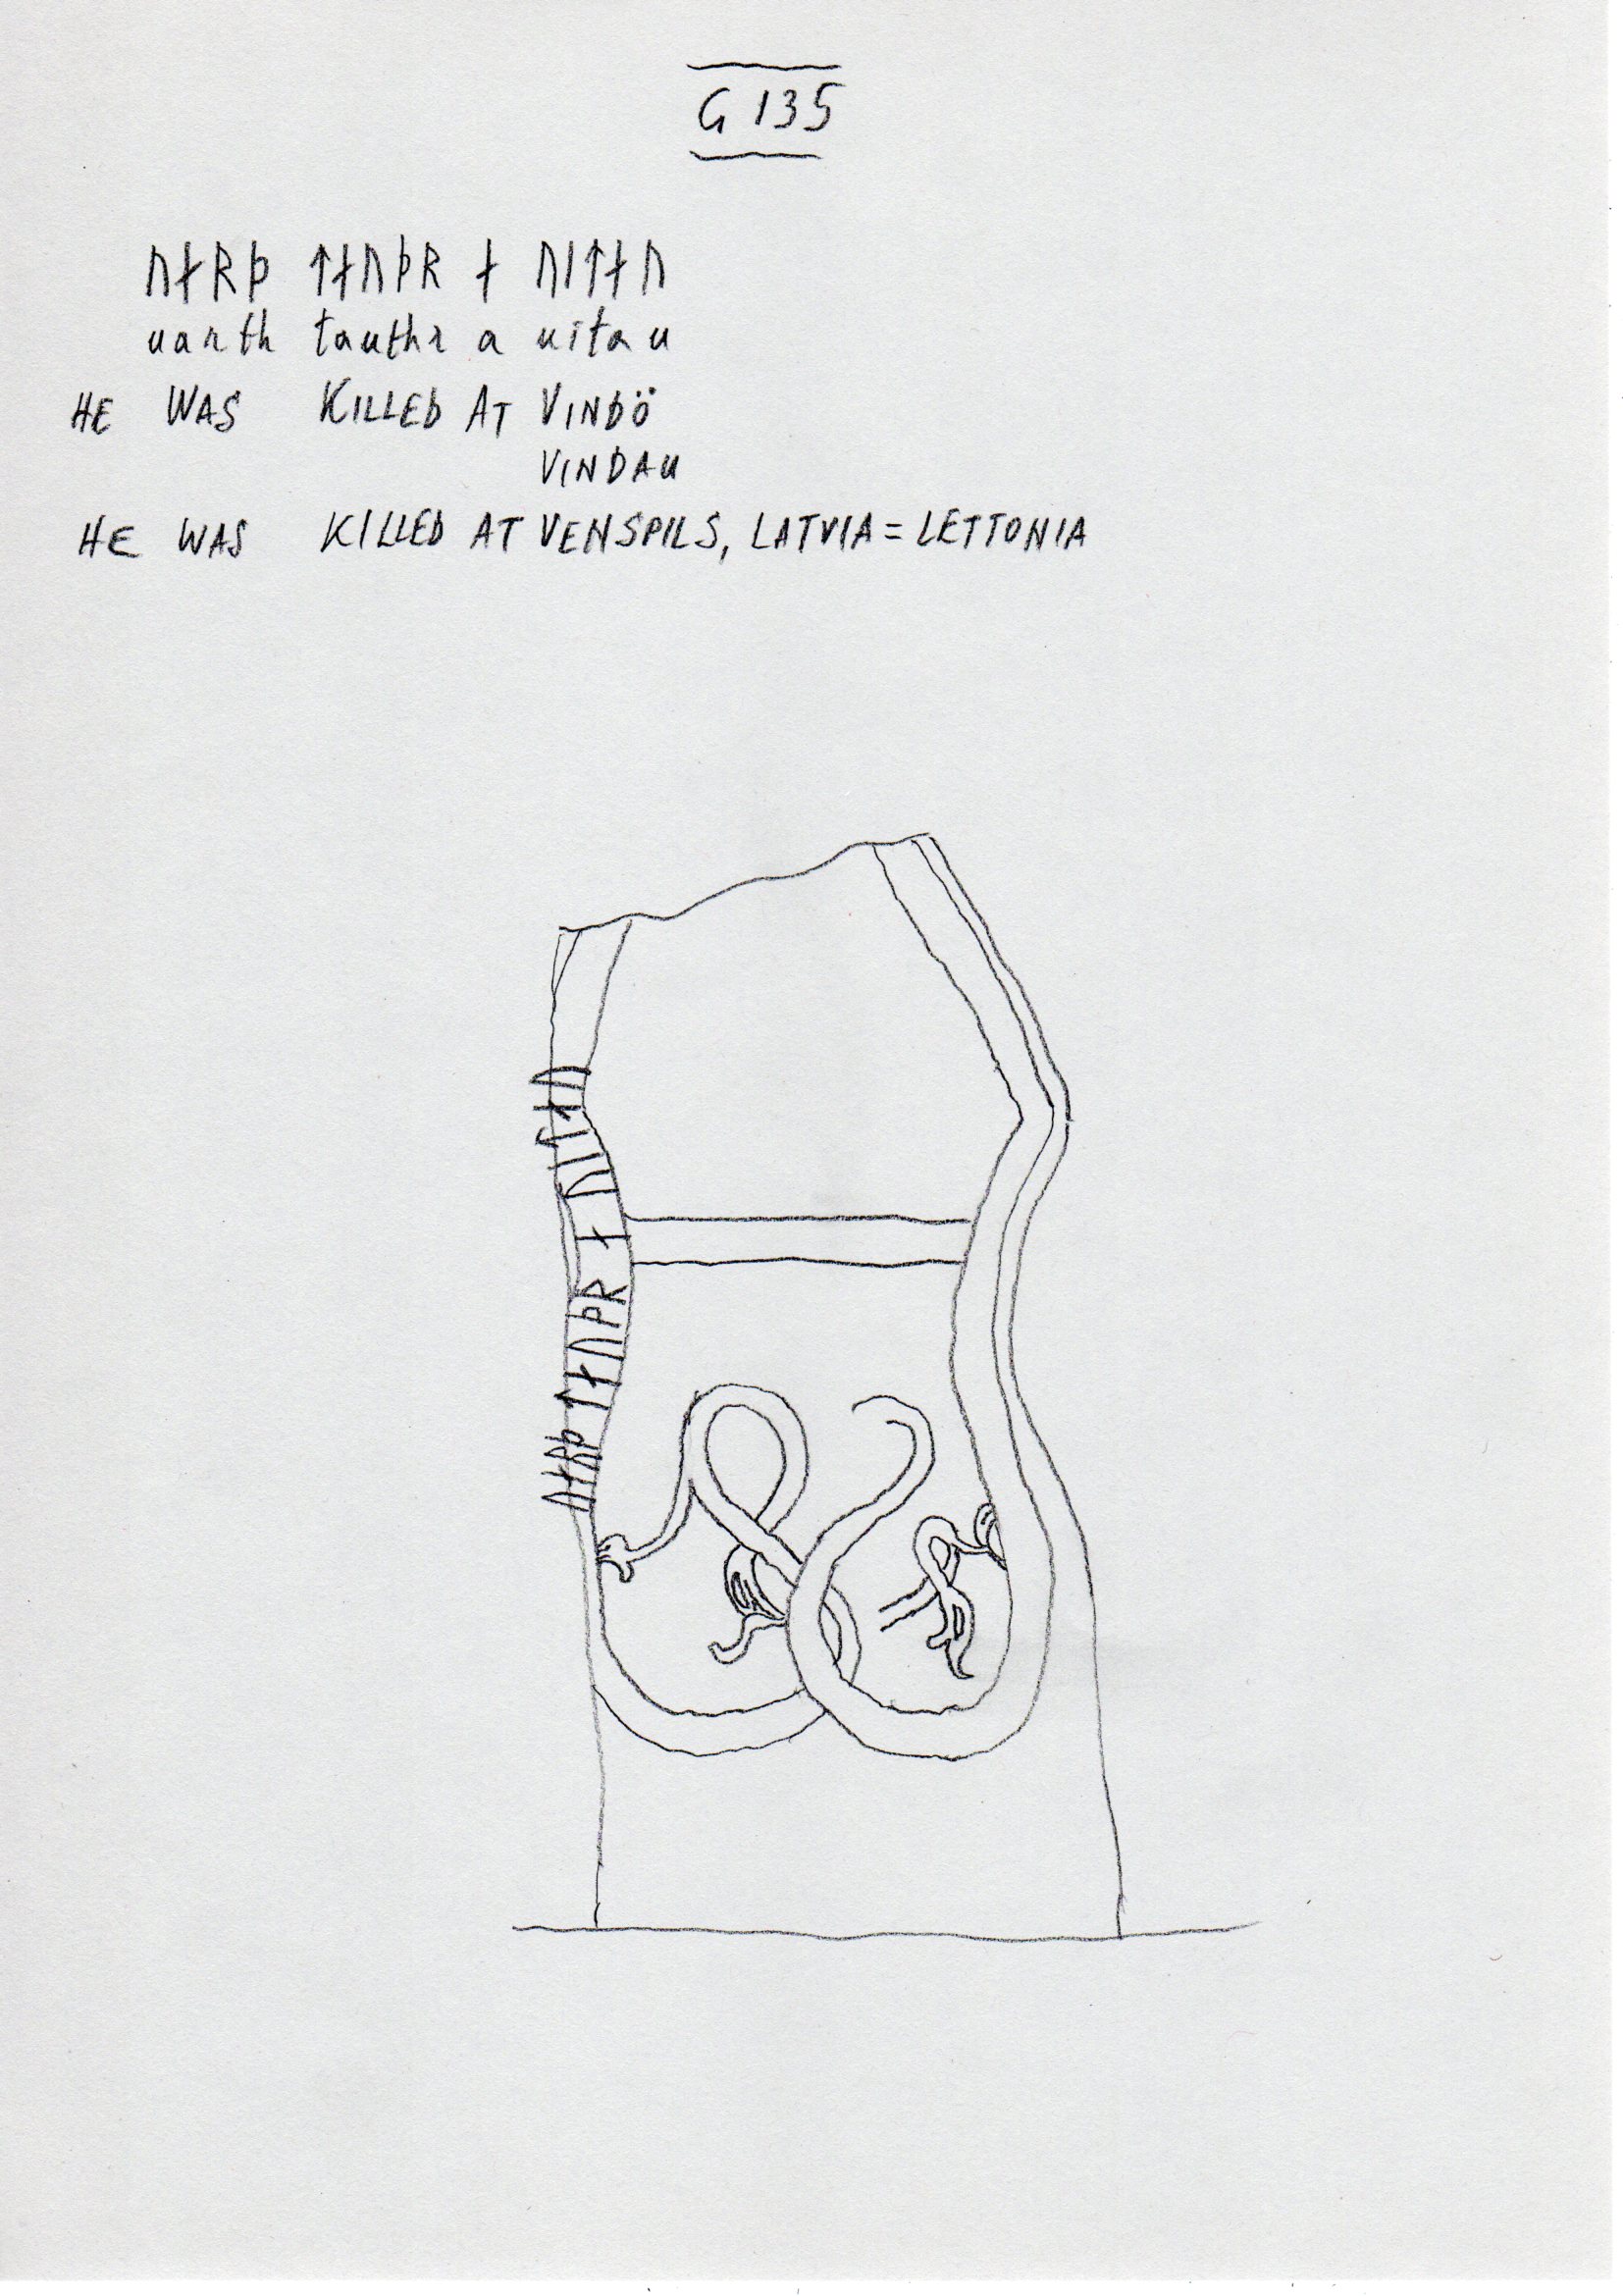 G 135
ᚢᛅᚱᚦ ᛏᛅᚢᚦᚱ ᛅ ᚢᛁᛏᛅᚢ
uarth tauthr a uitau
HE WAS KILLED AT VINDÖ
VINDAU
HE WAS KILLED AT VENSPILS, LATVIA = LETTONIA
ᚢᛅᚱᚦ ᛏᛅᚢᚦᚱ ᛅ ᚢᛁᛏᛅᚢ